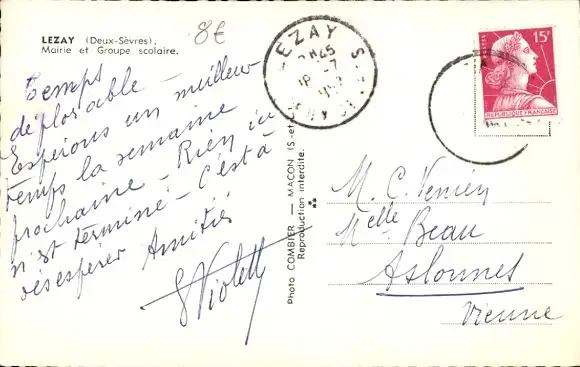 LEZAY (Deux-Sèvres).
Mairie et Groupe scolaire.
8€
Temps
déplorable -
Espérons un meilleur
temps la semaine
prochaine - Rien ici
n'est terminé - C'est à
désespérer Amitiés
Violett
Photo COMBIER — MACON (S.-et-L.)
Reproduction interdite.
LEZAY
15F
POSTES
REPUBLIQUE FRANÇAISE
M. C. Venien
Melle Beau
Aslonnes
Vienne